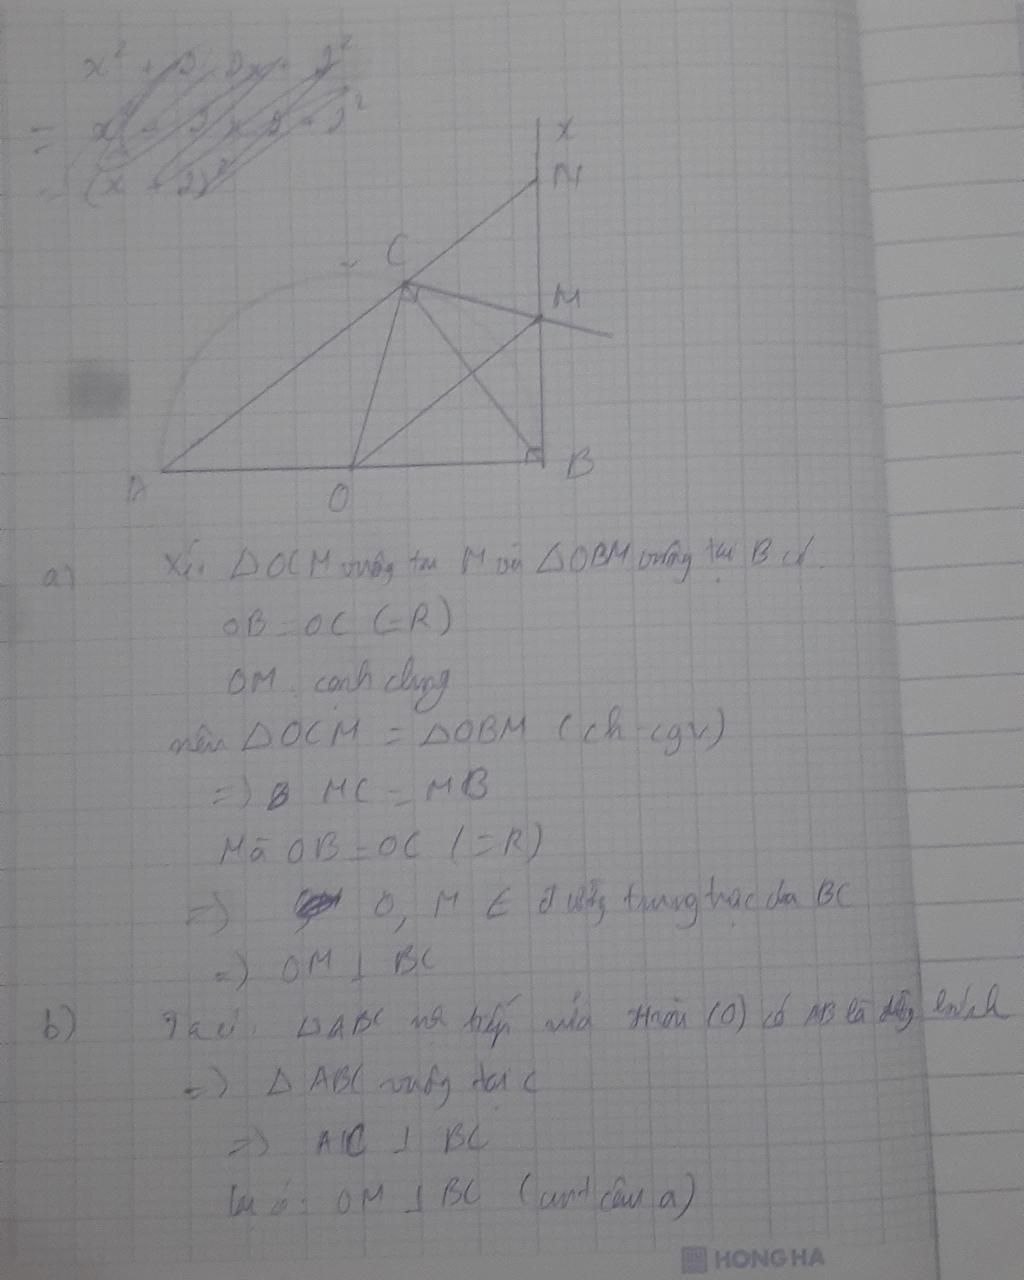 x² + 2. 2x + 2²
= x² + 2 x 2 + 2²
= (x + 2)²
x
N
C
M
B
A
O
a) Xét △OCM vuông tại M và △OBM vuông tại B có.
OB = OC (=R)
OM cạnh chung
nên △OCM = △OBM (ch-cgv)
=> MC = MB
Mà OB = OC (=R)
=> O, M ∈ đường trung trực của BC
=> OM ⊥ BC
b) Ta có: △ABC nội tiếp nửa (O) có AB là đường kính
=> △ABC vuông tại C
=> AC ⊥ BC
lại có: OM ⊥ BC (cmt câu a)
HONG HA